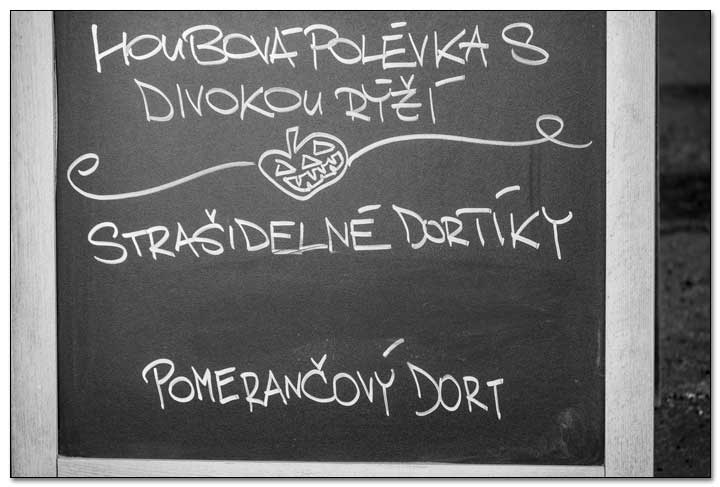 HOUBOVÁ POLÉVKA S
DIVOKOU RÝŽÍ
STRAŠIDELNÉ DORTÍKY
POMERANČOVÝ DORT